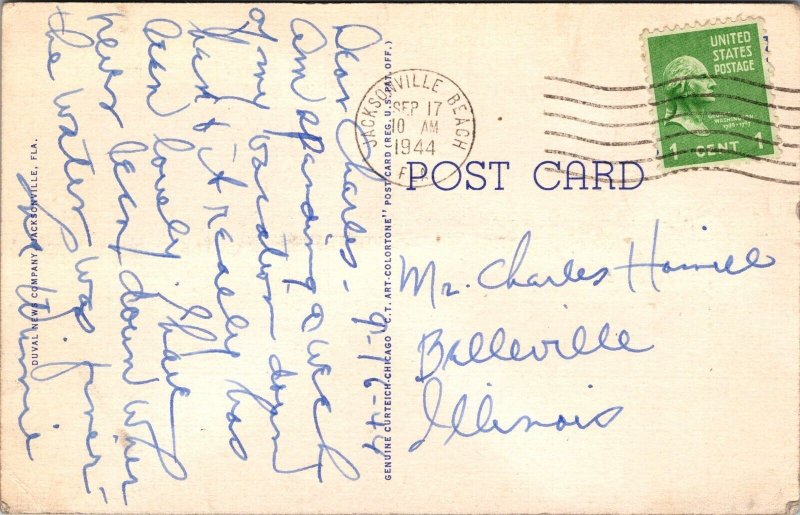 Dear Charles - 9-16-44
Am spending a week
of my vacation down
here & it really has
been lovely. I have
never been down when
the water was finer -
Winnie
DUVAL NEWS COMPANY, JACKSONVILLE, FLA.
GENUINE CURTEICH-CHICAGO "C.T. ART-COLORTONE" POST CARD (REG. U.S. PAT. OFF.)
JACKSONVILLE BEACH
SEP 17
10 AM
1944
FLA.
UNITED
STATES
POSTAGE
WASHINGTON
1 CENT 1
POST CARD
Mr. Charles
Belleville
Illinois